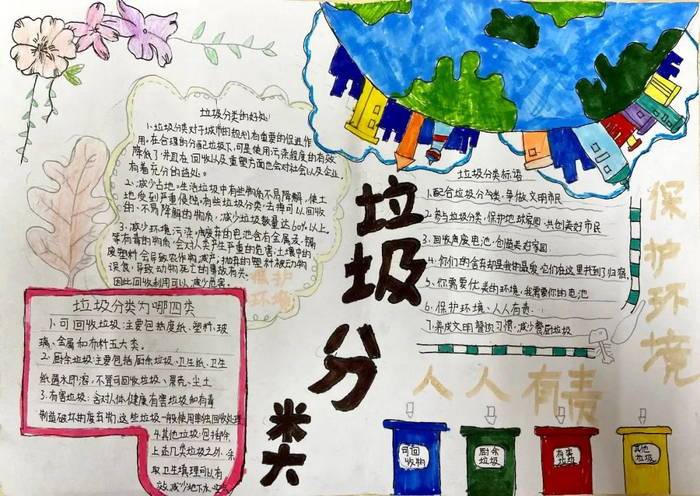 垃圾分类的好处
1.垃圾分类对于城市的规划有重要的促进作
用。在合理的分配垃圾下,可是使用污染程度的有效
降低了,并且在回收以及重塑方面也会对社会以及企业,
有着充分的益处。
2.减少占地。生活垃圾中有些物质不易降解,使土
地受到严重侵蚀,有些垃圾分类,去掉可以回收
的、不易降解的物质,减少垃圾数量达60%以上。
3.减少环境污染,废弃的电池含有金属汞、镉
等有毒的物质,会对人类产生严重的危害,土壤中的
废塑料会导致农作物减产;抛弃的塑料被动物
误食,导致动物死亡的事故有关。
因此回收利用可以减少危害。
保护
环境
垃圾分类标语
1.配合垃圾分类,争做文明市民
2.参与垃圾分类,保护地球家园,共创美好市民
3.回收废旧电池,创造美好家园
4.你们的舍弃却是我的最爱,它们在这里找到了归宿。
5.你需要优美的环境,我需要你的电池
6.保护环境、人人有责。
7.养成文明餐饮习惯,减少餐厨垃圾
垃圾分类
保护环境
人人有责
垃圾分类为哪四类
1.可回收垃圾:主要包括废纸、塑料、玻
璃、金属和布料五大类。
2.厨余垃圾:主要包括厨余垃圾、卫生纸、卫生
纸遇水即溶,不算可回收垃圾、果壳、尘土
3.有害垃圾:含对人体健康有害垃圾和有毒
制造破坏的废弃物,这些垃圾一般使用单独回收处理
4.其他垃圾:包括除
上述几类垃圾之外,采
取卫生填埋可以有
效减少地下水
可回
收物
厨余
垃圾
有害
垃圾
其他
垃圾